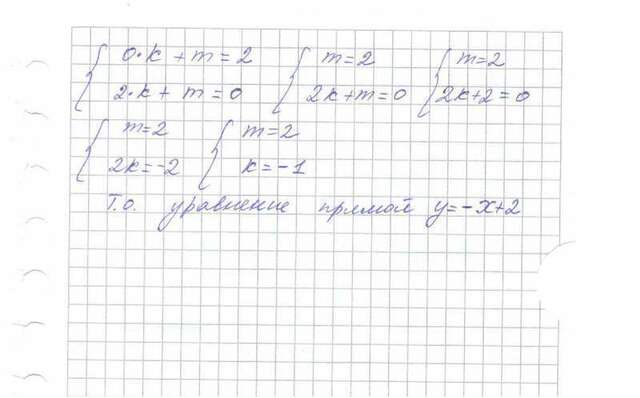 0·k + m = 2 m = 2 m = 2
2·k + m = 0 2k + m = 0 2k + 2 = 0
m = 2 m = 2
2k = -2 k = -1
Т.о. уравнение прямой y = -x + 2